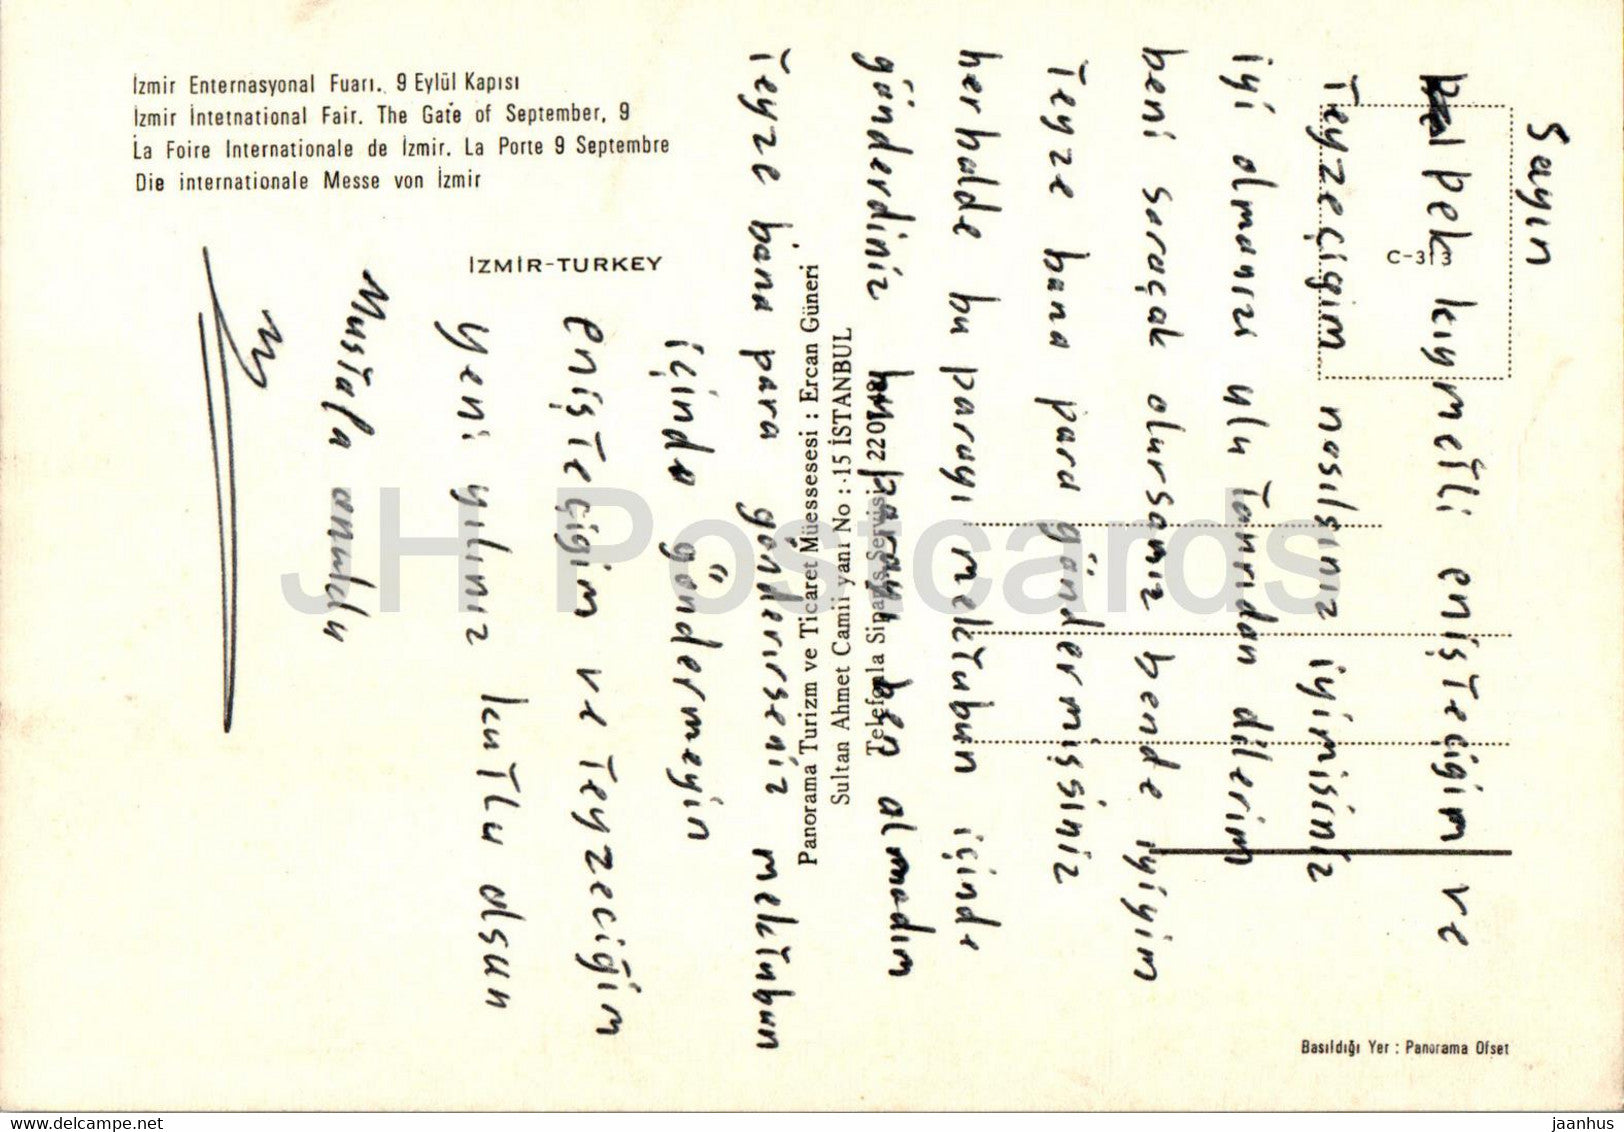 İzmir Enternasyonal Fuarı. 9 Eylül Kapısı
İzmir İntetnational Fair. The Gate of September, 9
La Foire Internationale de İzmir. La Porte 9 Septembre
Die internationale Messe von İzmir
İZMİR-TURKEY
C-313
Panorama Turizm ve Ticaret Müessesesi : Ercan Güneri
Sultan Ahmet Camii yani No : 15 İSTANBUL
Telefonla Sipariş Servisi 220748
Basıldığı Yer : Panorama Ofset
Sayın
pek kıymetli enişteçigim ve
Teyzeçigim nasılsınız iyimisiniz
iyi olmanızı ulu Tanrıdan dilerim
beni soraçak olursanız bende iyiyim
Teyze bana para göndermişsiniz
herhalde bu parayı mektubun içinde
gönderdiniz bu parayı ben almadım
Teyze bana para gönderırseniz mektubun
içinde göndermeyin
enişteçigim ve teyzeciğim
yeni yılınız kutlu olsun
Mustafa
JH Postcards
www.delcampe.net
jaanhus